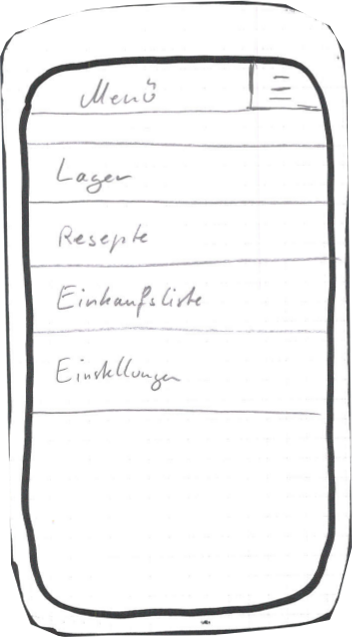 Menü
Lager
Resepte
Einkaufsliste
Einstellungen